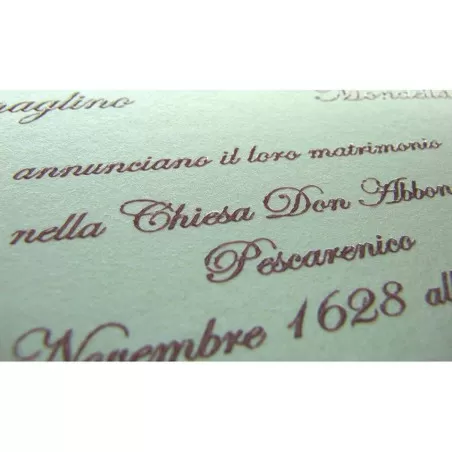 raglino Mondella
annunciano il loro matrimonio
nella Chiesa Don Abbon
Pescarenico
Novembre 1628 al